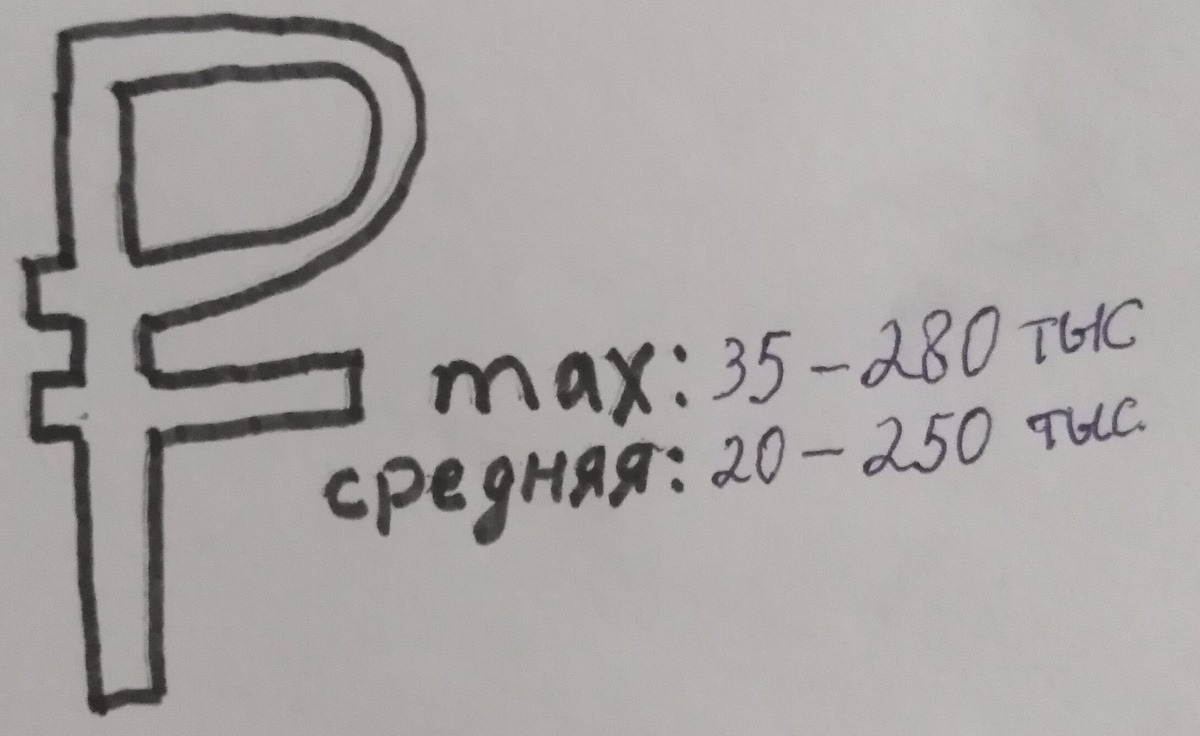 ₽
max: 35 – 280 тыс
средняя: 20 – 250 тыс.